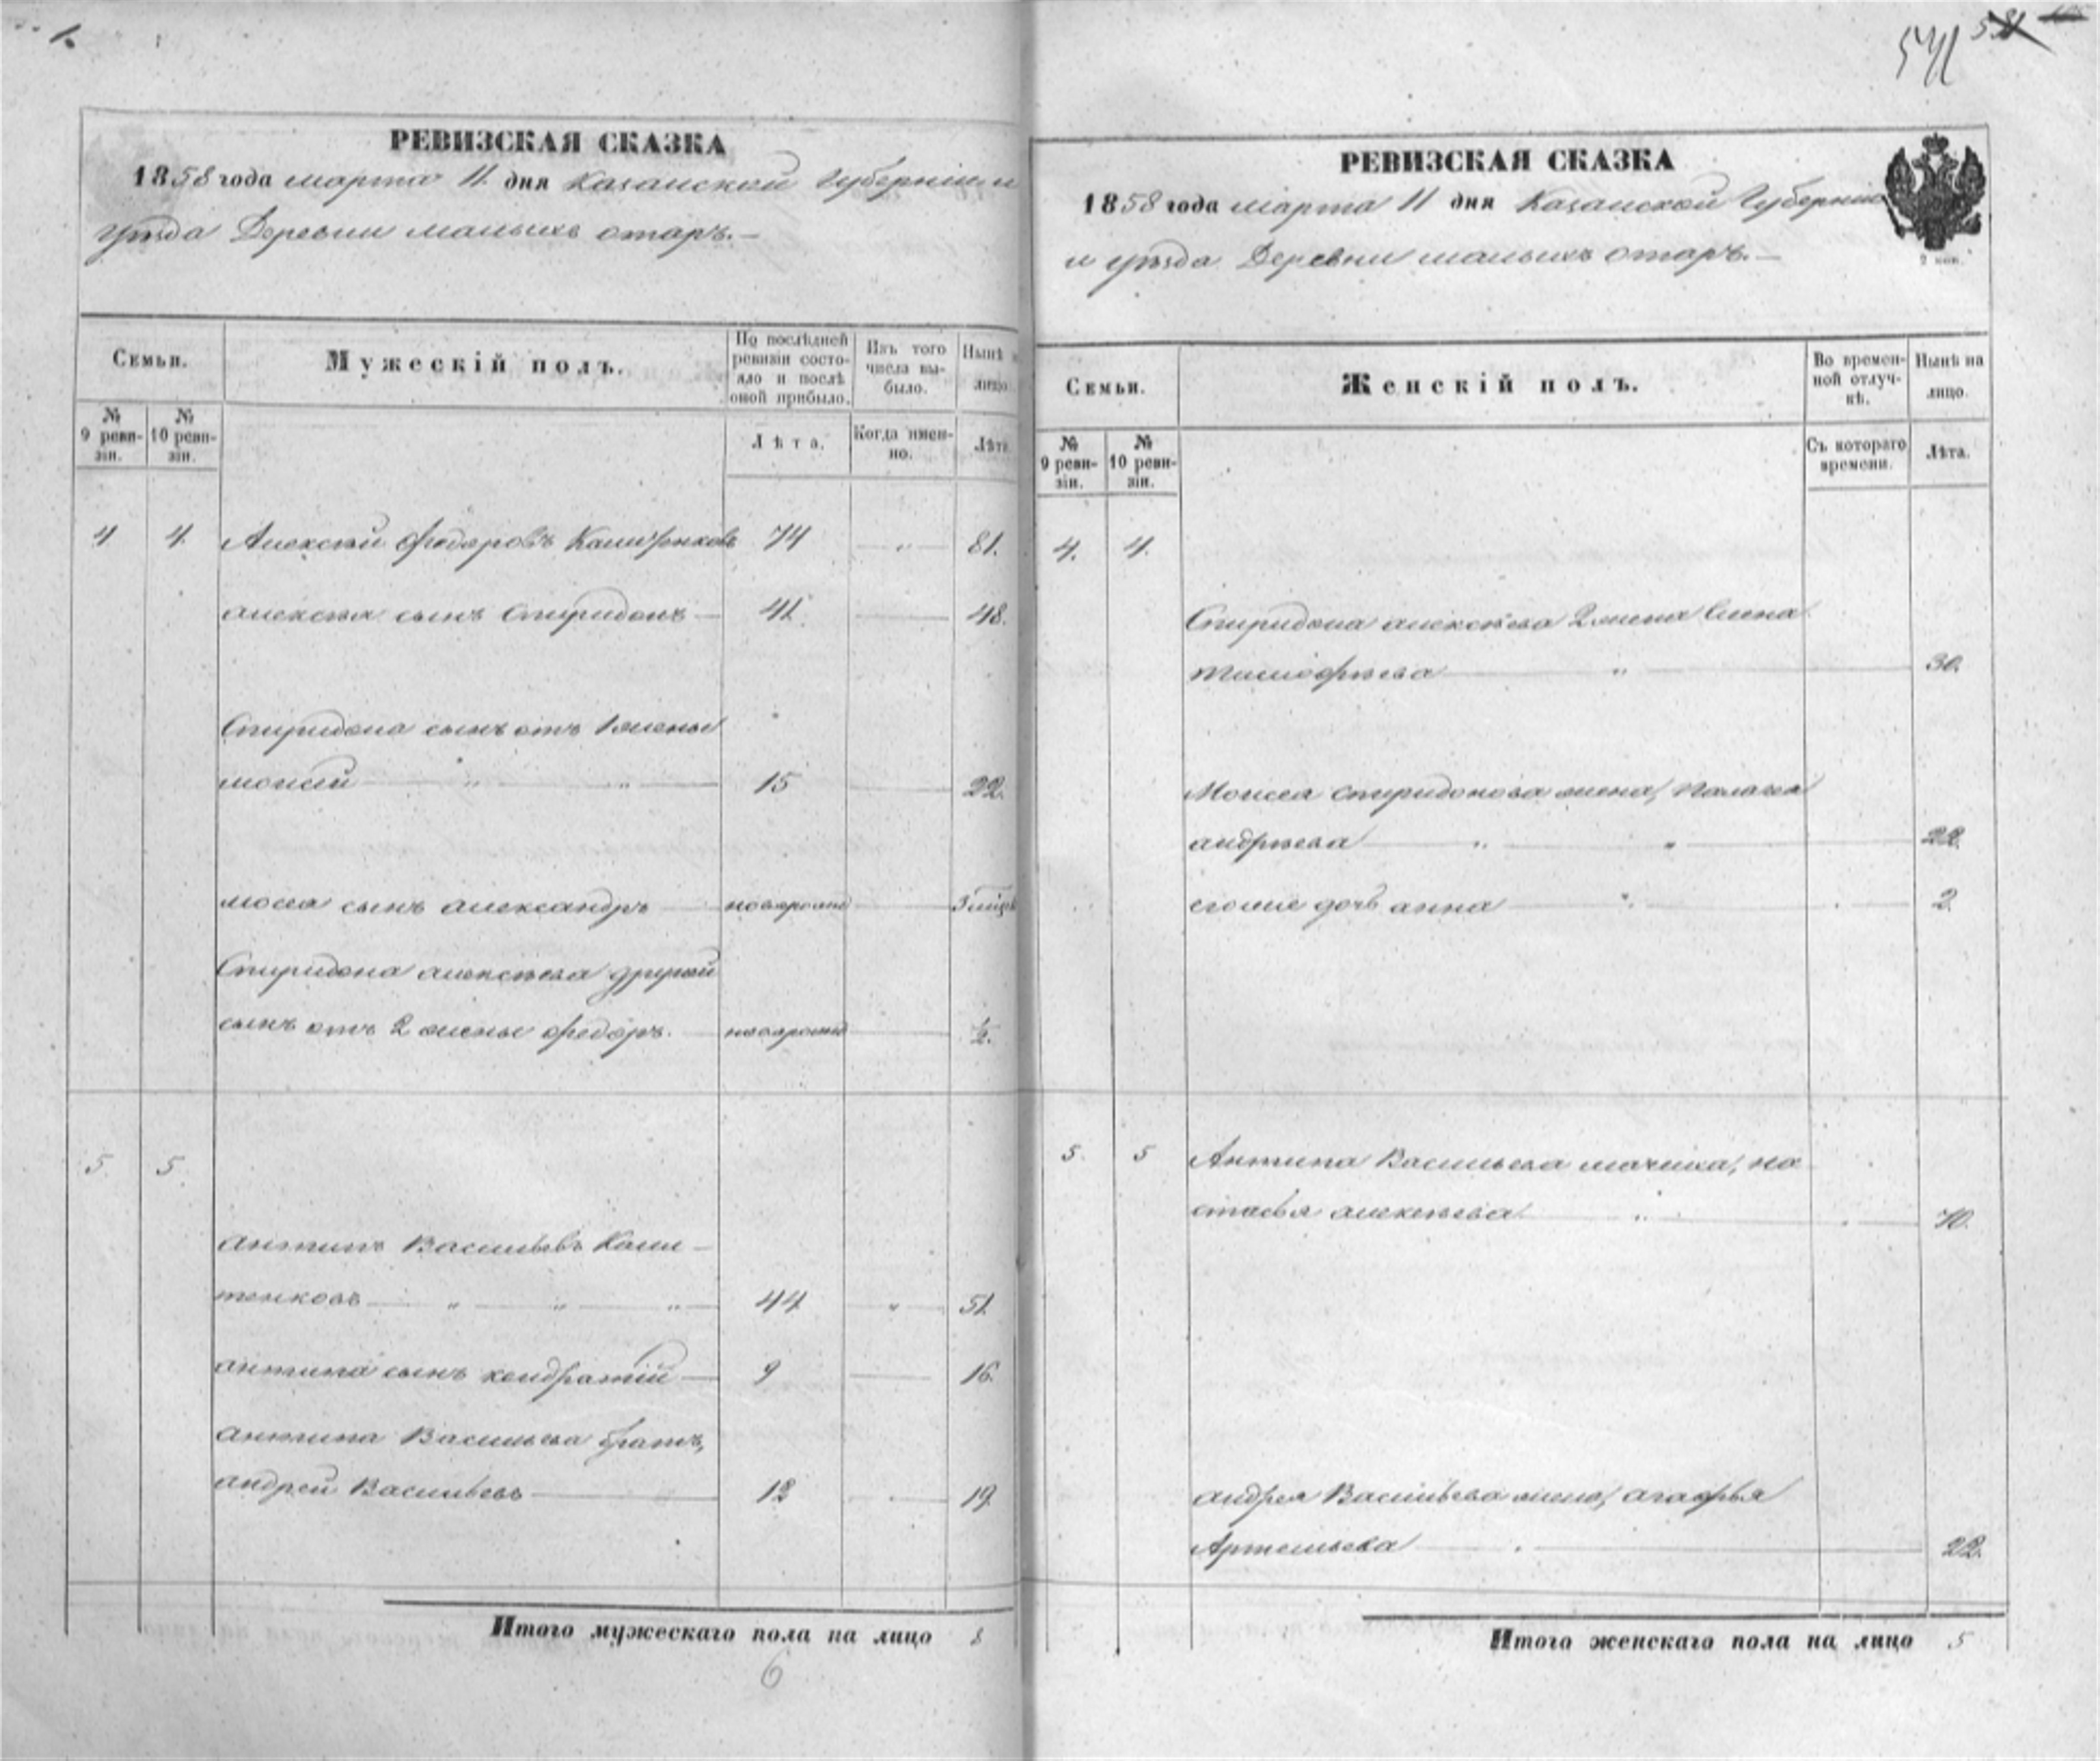 РЕВИЗСКАЯ СКАЗКА
1858 года марта 11 дня Казанской Губернии и
уѣзда Деревни малыхъ отаръ.
Семьи.
Мужескій полъ.
По послѣдней ревизіи состояло и послѣ оной прибыло.
Изъ того числа выбыло.
Нынѣ на лицо.
№ 9 ревизіи.
№ 10 ревизіи.
Лѣта.
Когда именно.
Лѣта.
4 4. Алексѣй Федоровъ 74 81.
алексѣя сынъ Спиридонъ 41. 48.
Спиридона сынъ отъ 1 жены
моисей 15 22.
мосея сынъ александръ новорожд 3 мѣс
Спиридона алексѣева другой
сынъ отъ 2 жены федоръ. новорожд ½.
5. 5.
антипъ Васильевъ Кали-
тенковъ 44 51
антипа сынъ кондратій 9 16.
антипа Васильева братъ,
андрей Васильевъ 12 19
Итого мужескаго пола на лицо 8
6
541
РЕВИЗСКАЯ СКАЗКА
1858 года марта 11 дня Казанской Губерніи
и уѣзда Деревни малыхъ отаръ.
2 коп.
Семьи.
Женскій полъ.
Во временной отлучкѣ.
Нынѣ на лицо.
№ 9 ревизіи.
№ 10 ревизіи.
Съ котораго времени.
Лѣта.
4. 4.
Спиридона алексѣева 2 жена Елена
тимофѣева 30.
Моисея спиридонова жена, Палагея
андрѣева 22.
егоже дочь анна 2
5. 5 Антипа Васильева мачиха, на
стасья алексѣева 70.
андрея Васильева жена, агафья
Артемьева 22.
Итого женскаго пола на лицо 5